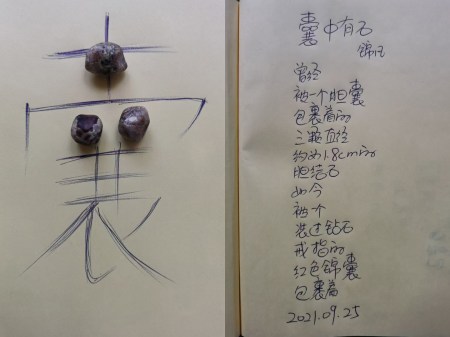 囊
囊中有石
锦石
曾经
被一个胆囊
包裹着的
三颗直径
约为1.8cm的
胆结石
如今
被个
装过钻石
戒指的
红色锦囊
包裹着
2021.09.25